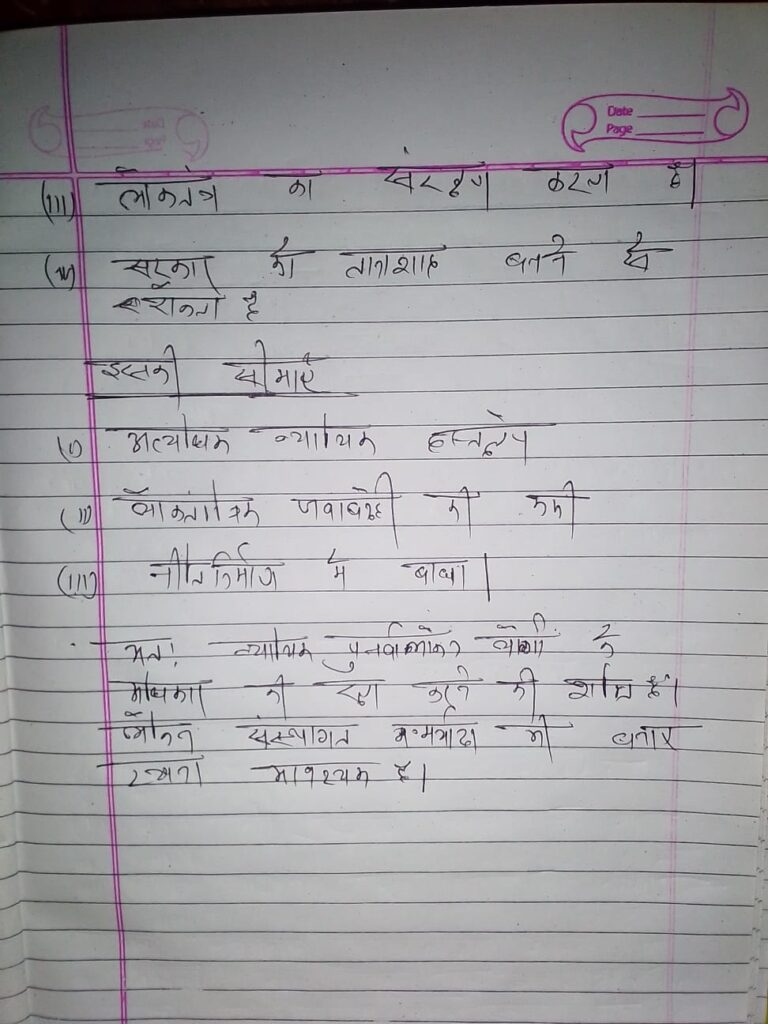 Date
Page
(III) लोकतंत्र का संरक्षण करता है।
(IV) सरकार को तानाशाह बनने से
रोकता है
इसकी सीमाएँ
(I) अत्यधिक न्यायिक हस्तक्षेप
(II) लोकतांत्रिक जवाबदेही की कमी
(III) नीति निर्माण में बाधा।
अतः न्यायिक पुनर्वालोकन लोगों के
अधिकार की रक्षा करने की शक्ति है।
लेकिन संस्थागत मर्यादा को बनाए
रखना आवश्यक है।